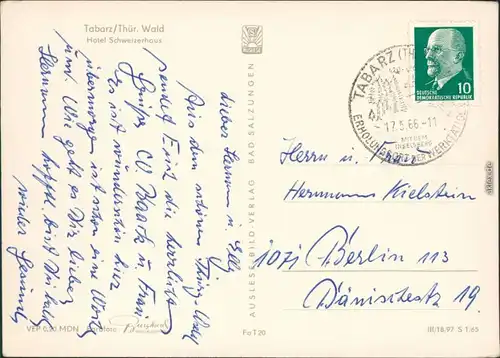 Tabarz/Thür. Wald
Hotel Schweizerhaus
Lieber Hermann u. Elly
Aus dem schönen Thür-Wald
sendet Euch die herzlichsten
Grüße
Es ist wunderschön hier
übermorgen ist schon eine Woche
um. Wie geht es Dir lieber
Hermann hofftl. bist Du bald
wieder Gesund.
VEP 0,20 MDN
Fo T 20
AUSLESE-BILD-VERLAG BAD SALZUNGEN
TABARZ (TH
17.5.66-11
MIT DEM
INSELSBERG
ERHOLUNGSORT DER WERKTÄTIGEN
DEUTSCHE
DEMOKRATISCHE REPUBLIK
10
Herrn u. Frau
Hermann Kielstein
1071 Berlin 113
Dänischestr 19.
III/18/97 S 1/65